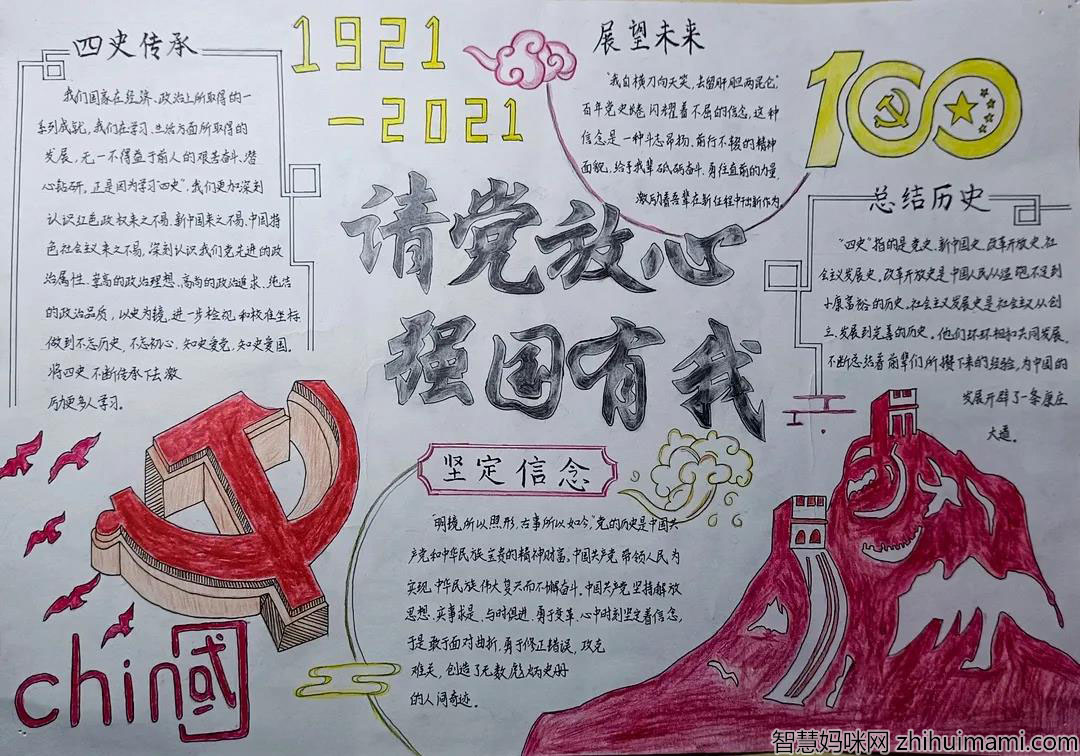 四史传承
我们国家在经济、政治上所取得的一
系列成就, 我们在学习、生活方面所取得的
发展, 无一不得益于前人的艰苦奋斗、潜
心钻研。正是因为学习“四史”, 我们更加深刻
认识红色政权来之不易、新中国来之不易、中国特
色社会主义来之不易, 深刻认识我们党先进的政
治属性、崇高的政治理想、高尚的政治追求、纯洁
的政治品质, 以史为镜, 进一步检视和校准坐标
做到不忘历史, 不忘初心, 知史爱党, 知史爱国。
将四史不断传承下去, 激
励更多人学习。
1921
-2021
展望未来
“我自横刀向天笑, 去留肝胆两昆仑”
百年党史卷闪耀着不屈的信念, 这种
信念是一种斗志昂扬、前行不辍的精神
面貌, 给予我辈砥砺奋斗、勇往直前的力量,
激励着吾辈在新征程中出新作为
100
总结历史
“四史”指的是党史、新中国史、改革开放史、社
会主义发展史。改革开放史是中国人民从温饱不足到
小康富裕的历史, 社会主义发展史是社会主义从创
立、发展到完善的历史。他们环环相扣共同发展。
不断总结着前辈们所攒下来的经验, 为中国的
发展开辟了一条康庄
大道。
请党放心
强国有我
坚定信念
“明镜所以照形, 古事所以知今,”党的历史是中国共
产党和中华民族宝贵的精神财富。中国共产党带领人民为
实现中华民族伟大复兴而不懈奋斗。中国共产党坚持解放
思想、实事求是、与时俱进、勇于变革、心中时刻坚定着信念,
于是敢于面对曲折, 勇于修正错误, 攻克
难关, 创造了无数彪炳史册
的人间奇迹。
chin國
智慧妈咪网 zhihuimami.com